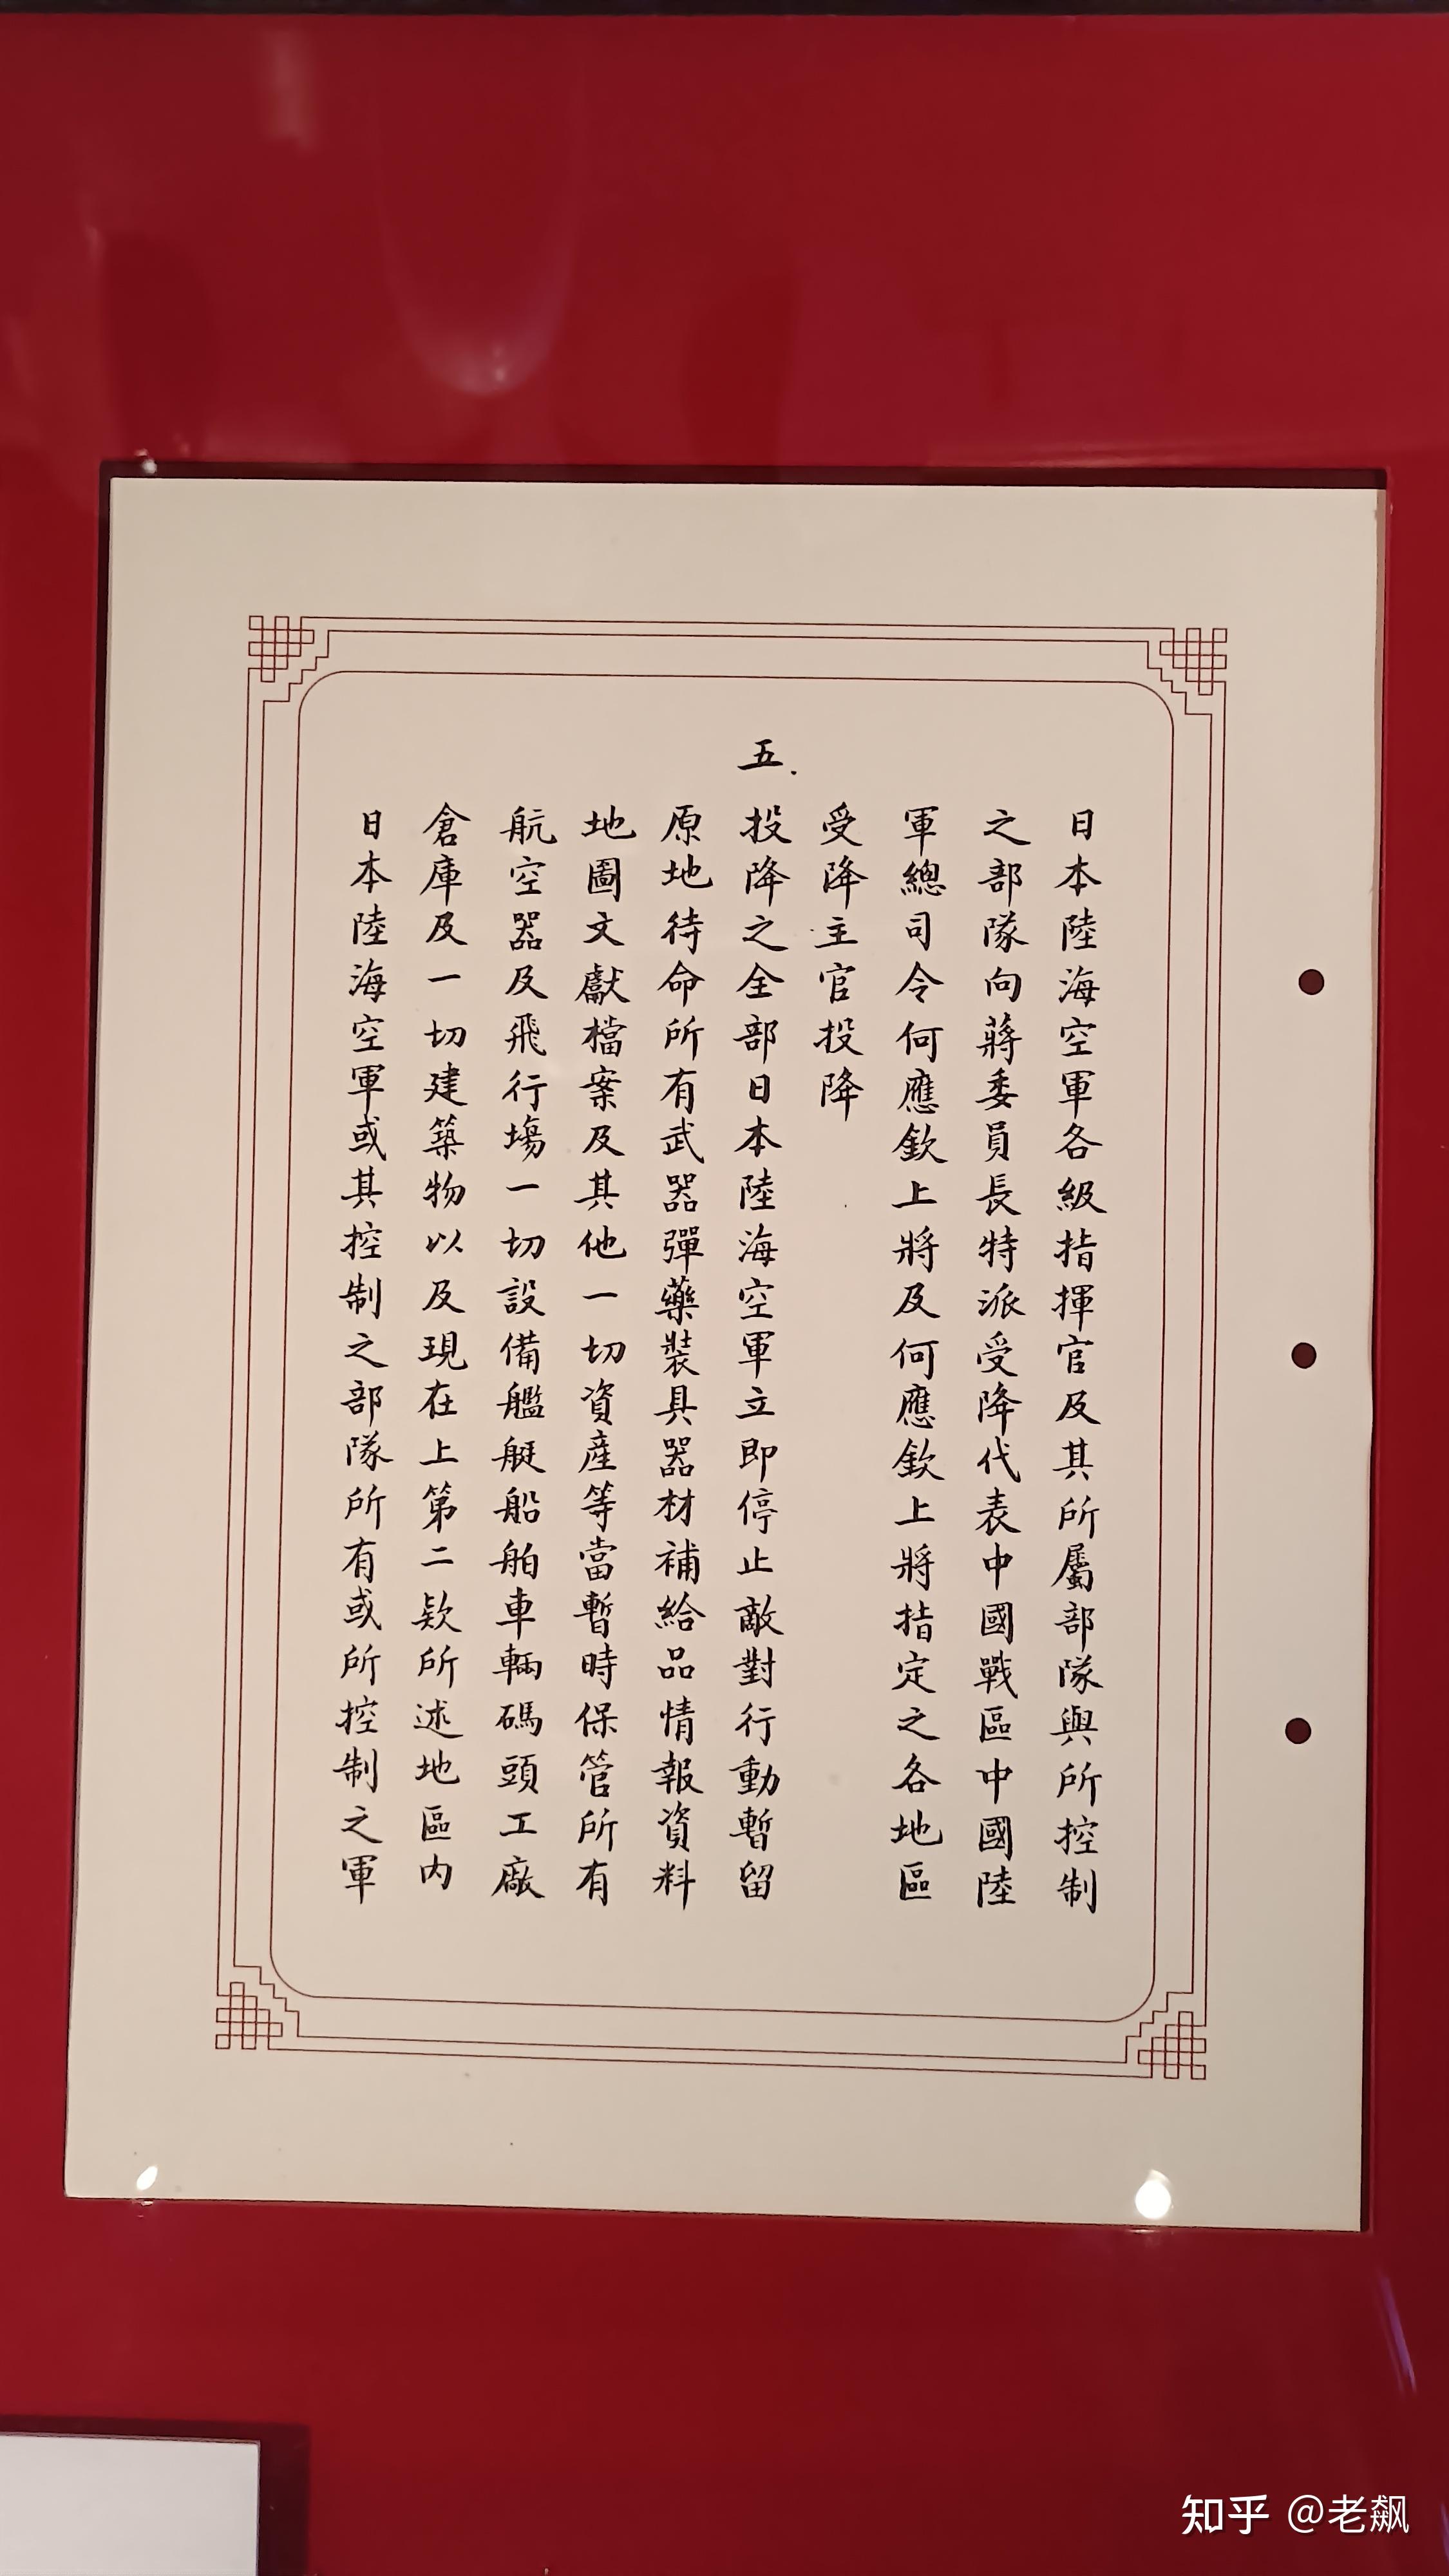 日本陸海空軍各級指揮官及其所屬部隊與所控制
之部隊向蔣委員長特派受降代表中國戰區中國陸
軍總司令何應欽上將及何應欽上將指定之各地區
受降主官投降
五.
投降之全部日本陸海空軍立即停止敵對行動暫留
原地待命所有武器彈藥裝具器材補給品情報資料
地圖文獻檔案及其他一切資產等當暫時保管所有
航空器及飛行場一切設備艦艇船舶車輛碼頭工廠
倉庫及一切建築物以及現在上第二款所述地區內
日本陸海空軍或其控制之部隊所有或所控制之軍
知乎 @老飙